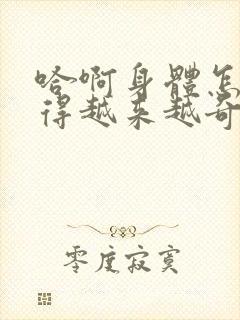 哈啊身體怎
得越来越奇
零度寂寞